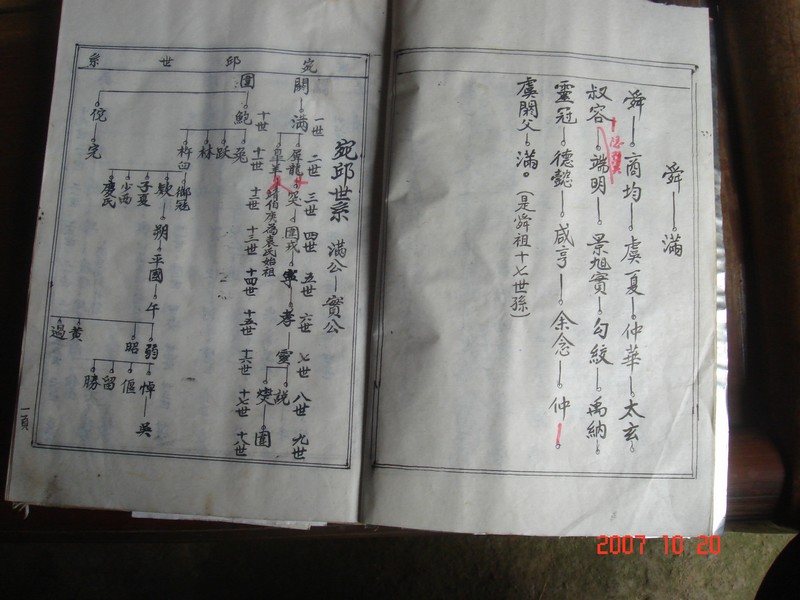 舜—滿
舜—商均—虞夏—仲華—太玄
叔容—端明—景旭實—勾紋—禹納
靈冠—德懿—咸亨—余念—仲
虞閼父—滿。(是舜祖十七世孫)
宛邱世系
宛邱世系 滿公—實公
一世 二世 三世 四世 五世 六世 七世 八世 九世
閼 滿 犀龍 圉戎 寧 孝 靈 說
皐羊 靖伯庚為袁氏始祖 燮 圉
十世 十一世 十二世 十三世 十四世 十五世 十六世 十七世 十八世
圉 鮑 免 躍 林 杵臼 御冠
款 朔 平國 午 弱 悼 吳
子夏 少西 慶氏 昭 偃 留 勝
佗 完 黃 過
一頁
2007 10 20